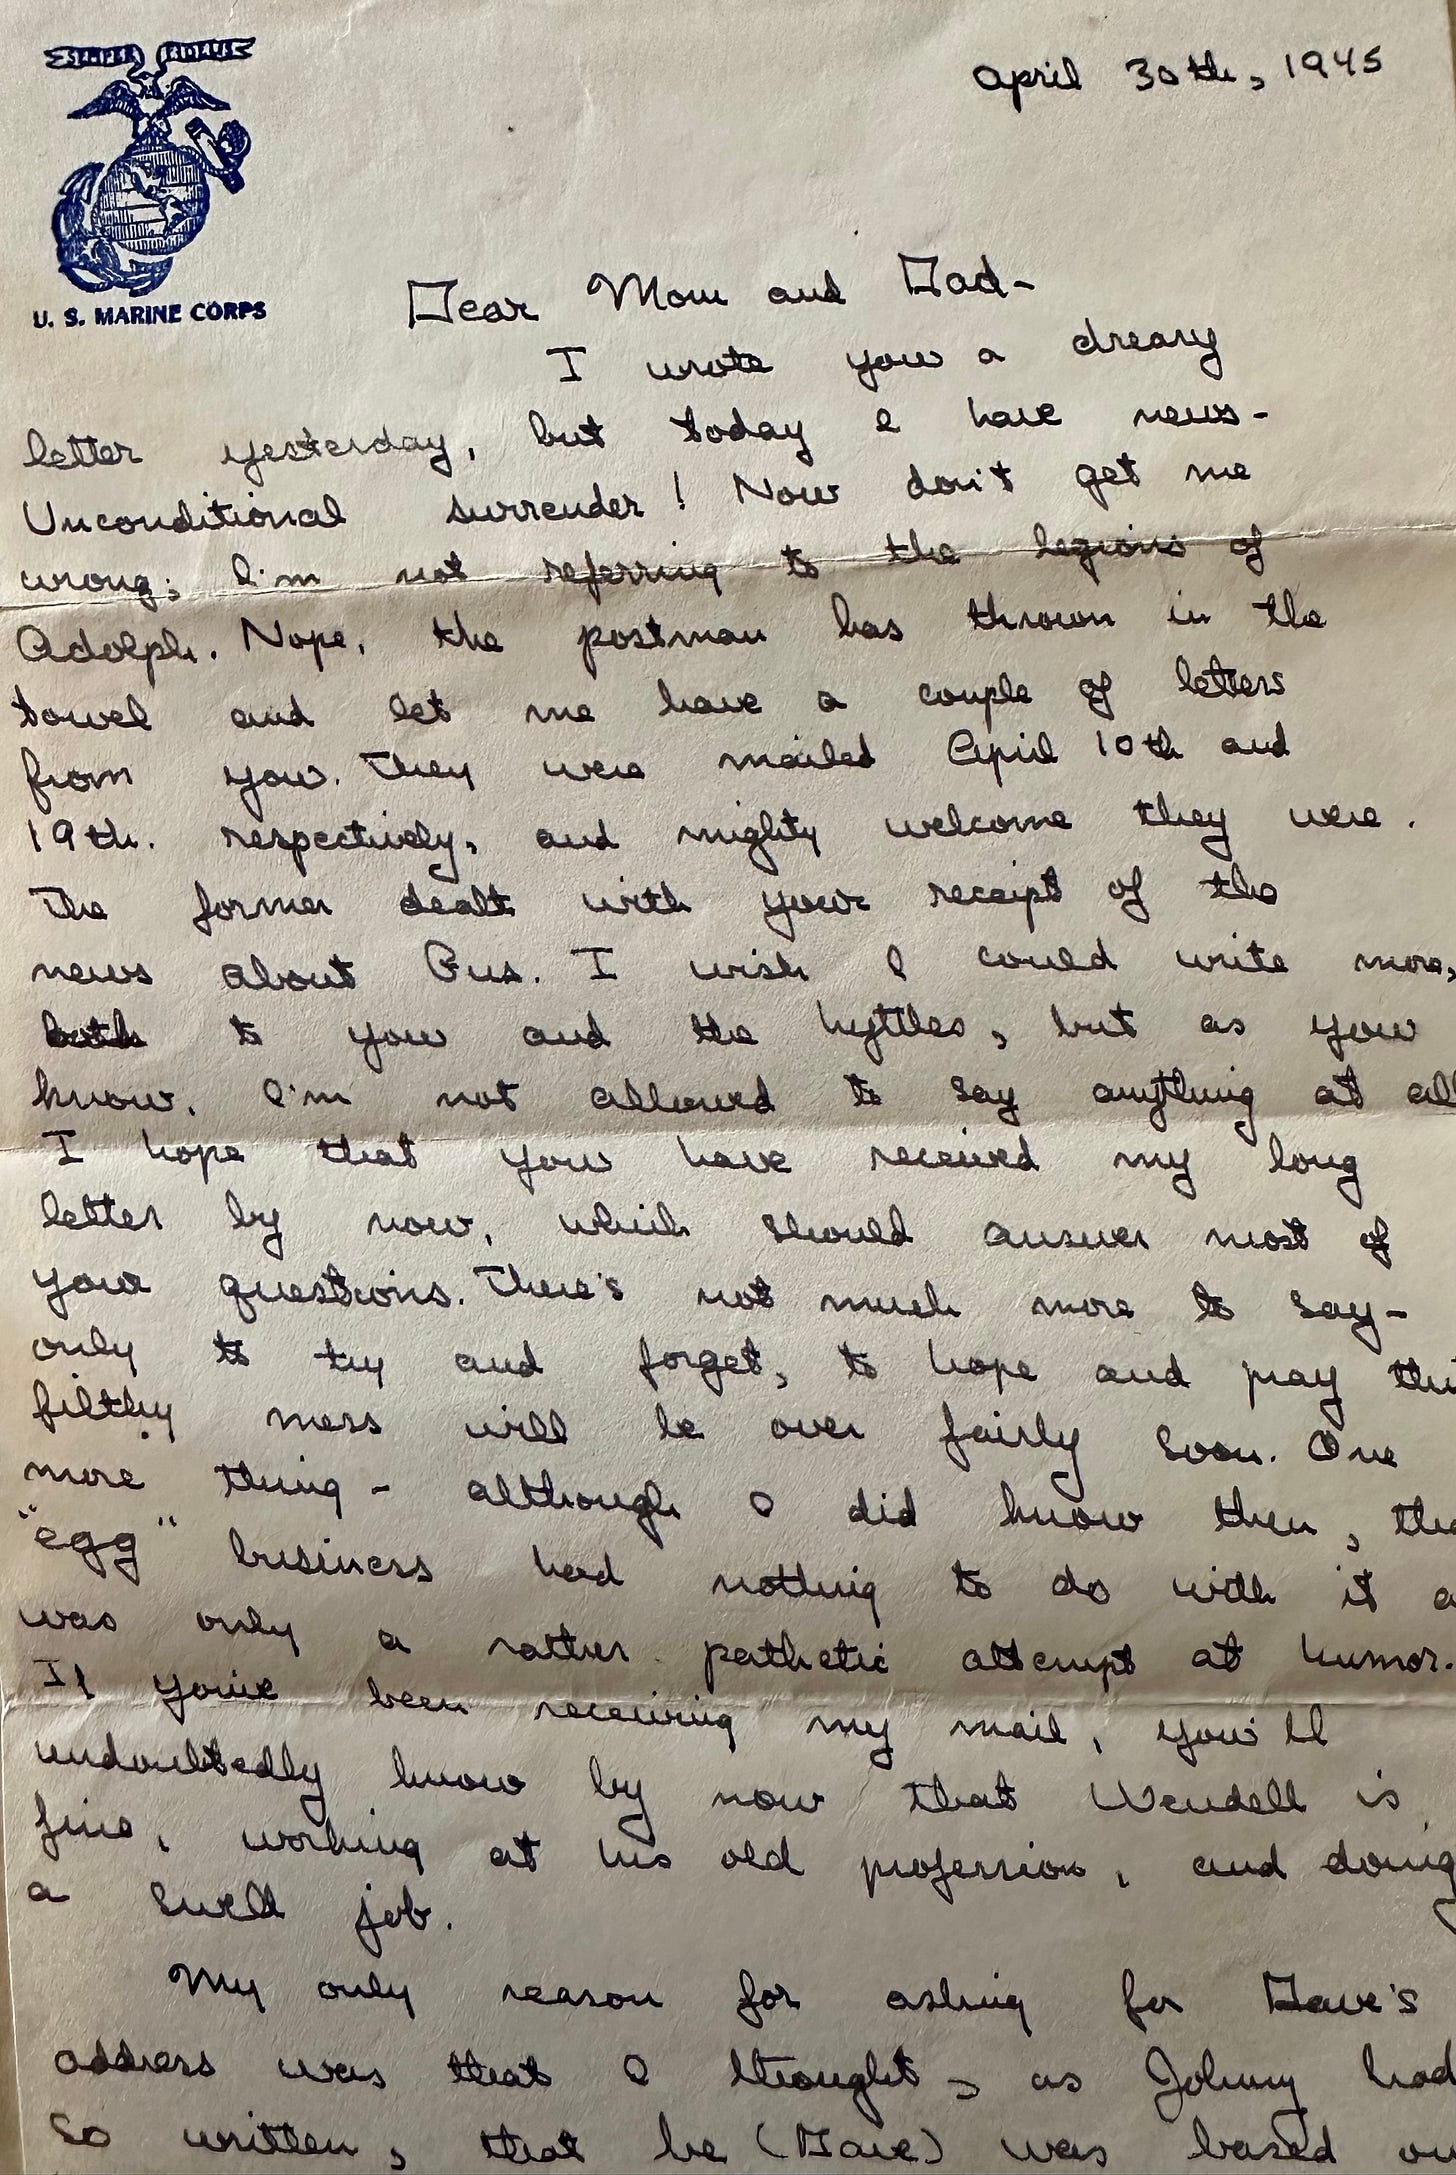 SEMPER FIDELIS
U. S. MARINE CORPS
April 30th, 1945
Dear Mom and Dad-
I wrote you a dreary
letter yesterday, but today I have news-
Unconditional surrender! Now don't get me
wrong; I'm not referring to the legions of
Adolph. Nope, the postman has thrown in the
towel and let me have a couple of letters
from you. They were mailed April 10th and
19th. respectively, and mighty welcome they were.
The former dealt with your receipt of the
news about Gus. I wish I could write more,
both to you and the , but as you
know, I'm not allowed to say anything at all
I hope that you have received my long
letter by now, which should answer most of
your questions. There's not much more to say-
only to try and forget, to hope and pray this
filthy mess will be over fairly soon. One
more thing - although I did know then, the
"egg" business had nothing to do with it a
was only a rather pathetic attempt at humor.
If you've been receiving my mail, you'll
undoubtedly know by now that Wendell is
fine, working at his old profession, and doing
a swell job.
My only reason for asking for Dave's
address was that I thought, as Johnny had
so written, that he (Dave) was based on